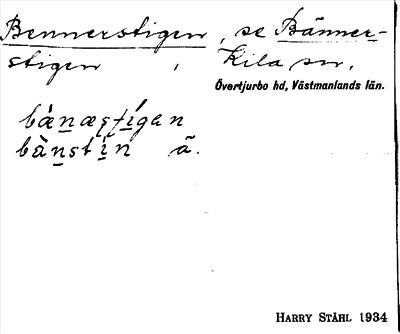 Bennerstigen, se Bänner-
stigen, Kila sn,
Övertjurbo hd, Västmanlands län.
bänæstigen
bänstin ä.
HARRY STÅHL 1934